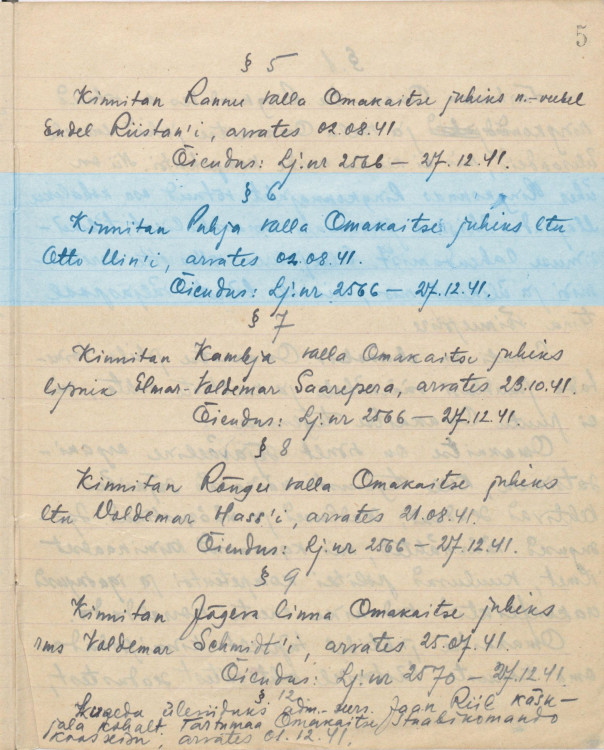 5
§ 5
Kinnitan Rannu valla Omakaitse juhiks n.-veebel
Endel Riistan'i, arvates 02.08.41.
Õiendus: Lj.nr 2566 — 27.12.41.
§ 6
Kinnitan Puhja valla Omakaitse juhiks ltn
Otto Unn'i, arvates 02.08.41.
Õiendus: Lj.nr 2566 — 27.12.41.
§ 7
Kinnitan Kambja valla Omakaitse juhiks
lipnik Elmar-Voldemar Saarepera, arvates 23.10.41.
Õiendus: Lj.nr 2566 — 27.12.41.
§ 8
Kinnitan Rõngu valla Omakaitse juhiks
ltn Voldemar Hass'i, arvates 21.08.41.
Õiendus: Lj.nr 2566 — 27.12.41.
§ 9
Kinnitan Jõgeva linna Omakaitse juhiks
rms Voldemar Schmidt'i, arvates 25.07.41.
Õiendus: Lj.nr 2570 — 27.12.41.
§ 12
ülesiduks adm.-sers. Jaan Riil käsk-
jala kohalt Tartumaa Omakaitse Staabikomando
koosseisu, arvates 01.12.41.